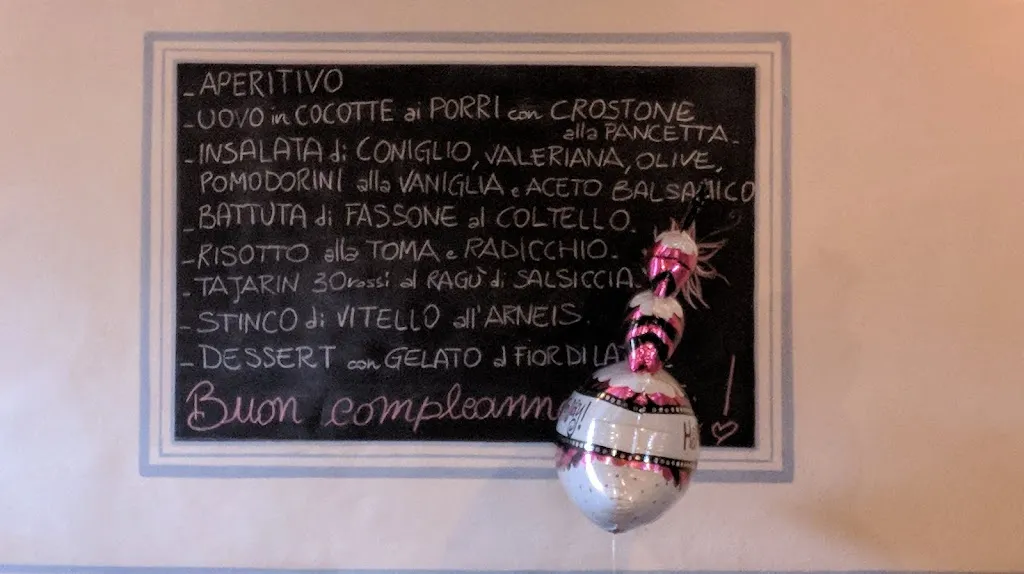 - APERITIVO
- UOVO in COCOTTE ai PORRI con CROSTONE
alla PANCETTA -
- INSALATA di CONIGLIO, VALERIANA, OLIVE,
POMODORINI alla VANIGLIA e ACETO BALSAMICO
- BATTUTA di FASSONE al COLTELLO.
- RISOTTO alla TOMA e RADICCHIO.
- TAJARIN 30 rossi al RAGÙ di SALSICCIA.
- STINCO di VITELLO all'ARNEIS.
- DESSERT con GELATO al FIOR DI
Buon compleann ! ♡